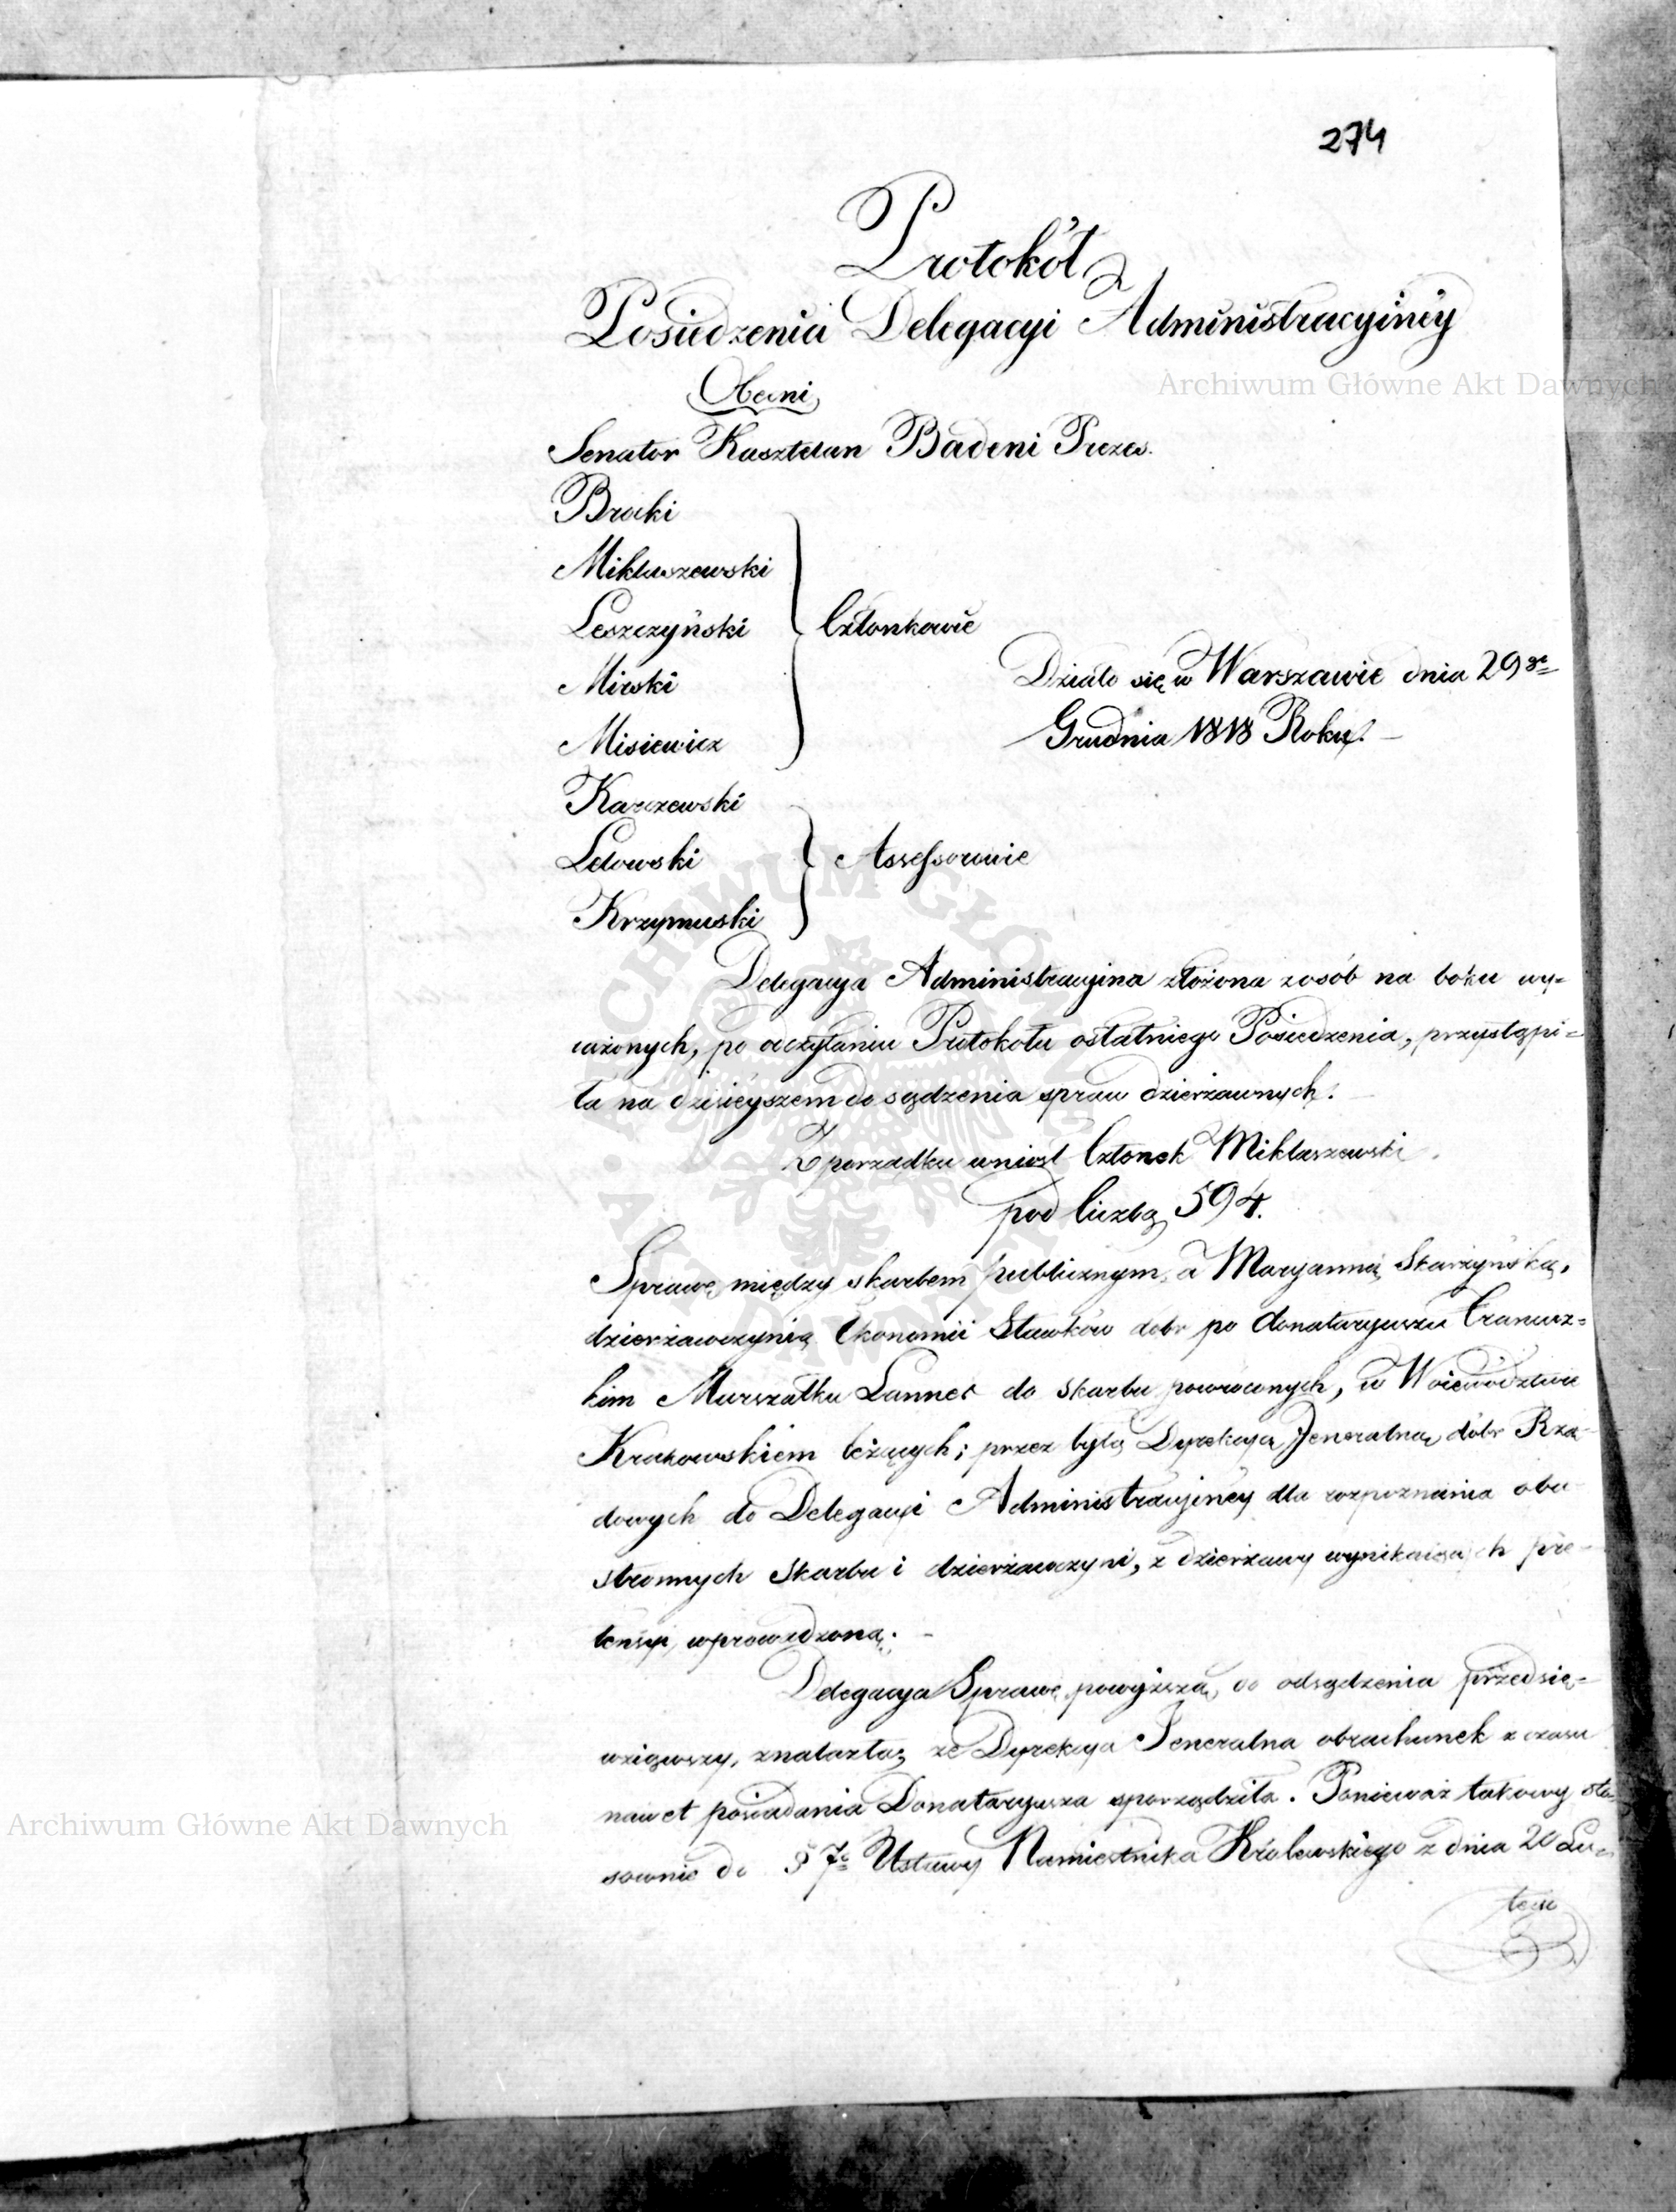 274
Protokół
Posiedzenia Delegacyi Administracyiney
Obecni
Senator Kasztelan Badeni Prezes.
Brocki
Miklaszewski
Leszczyński
Mirski
Misiewicz
Członkowie
Działo się w Warszawie dnia 29go
Grudnia 1818 Roku. –
Karczewski
Lelowski
Krzymuski
Assessorowie
Delegacya Administracyina złożona z osób na boku wy=
rażonych, po odczytaniu Protokołu ostatniego Posiedzenia, przystąpi=
ła na dzisieyszem do sądzenia spraw dzierżawnych. –
Z porządku wniósł Członek Miklaszewski
pod liczbą 594.
Sprawę między skarbem publicznym, a Maryanną Skarżyńską,
dzierżawczynią Ekonomii Sławków dóbr po donataryuszu Francuz=
kim Marszałku Lannes do skarbu powróconych, w Woiewództwie
Krakowskiem leżących; przez byłą Dyrekcyą Jeneralną dóbr Rzą-
dowych do Delegacyi Administracyiney dla rozpoznania obu-
stronnych Skarbu i dzierżawczyni, z dzierżawy wynikaiących pre-
tensyi, wprowadzoną. –
Delegacya Sprawę powyższą, do odsądzenia przedsię=
wziąwszy, znalazła, że Dyrekcya Jeneralna obrachunek z czasu
nawet posiadania Donataryusza sporządziła. Ponieważ takowy sto-
sownie do § 7o Ustawy Namiestnika Królewskiego z dnia 20 Lu=
tego
Archiwum Główne Akt Dawnych
Archiwum Główne Akt Dawnych
ARCHIWUM GŁÓWNE AKT DAWNYCH